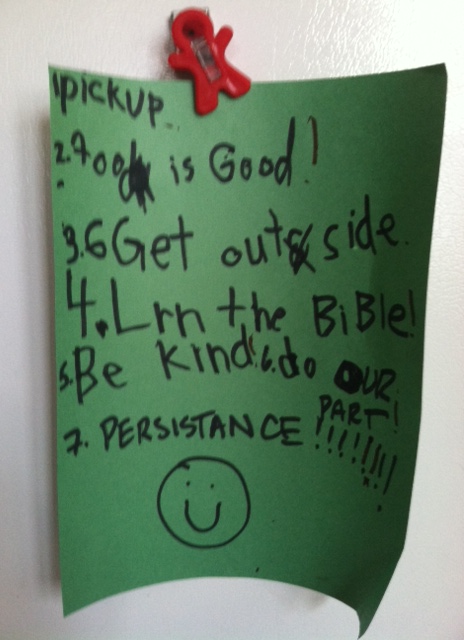 1pickup
2. Food is Good!
3.6 Get outside.
4. Lrn the BiBle!
5. Be kind! 6. do OUR
PART!
7. PERSISTANCE !!!!!!!